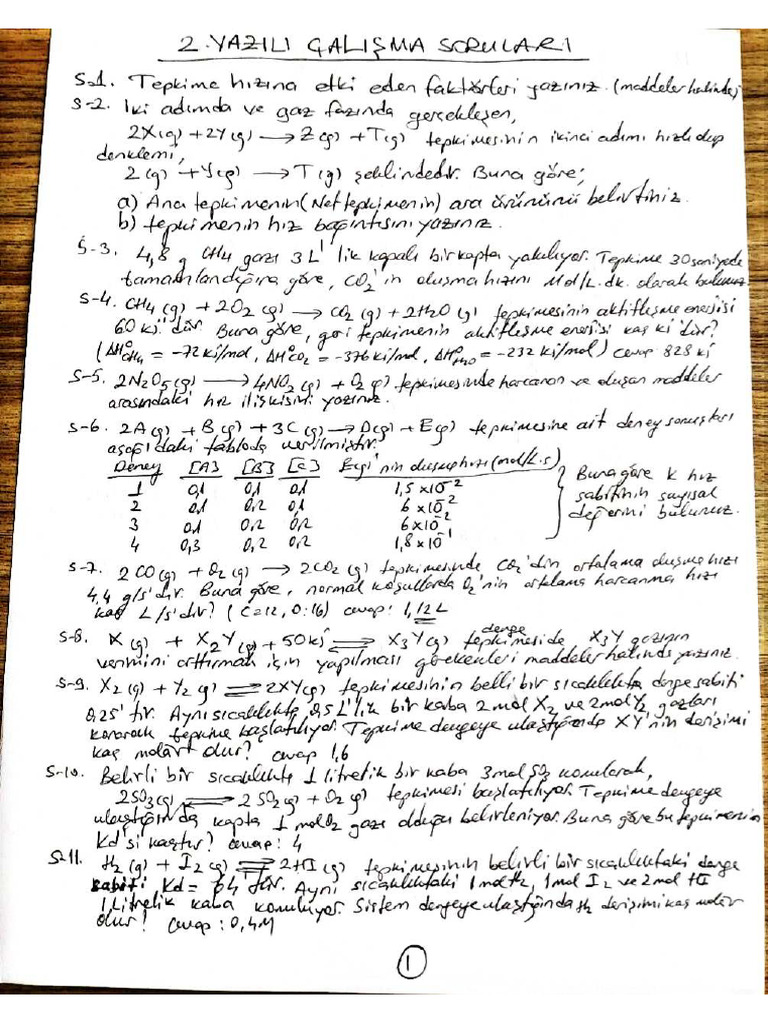 2. YAZILI ÇALIŞMA SORULARI
S-1. Tepkime hızına etki eden faktörleri yazınız. (maddeler halinde)
S-2. İki adımda ve gaz fazında gerçekleşen,
2X(g) + 2Y(g) → Z(g) + T(g) tepkimesinin ikinci adımı hızlı olup
denklemi,
Z(g) + Y(g) → T(g) şeklindedir. Buna göre;
a) Ana tepkimenin (Net tepkimenin) ara ürününü belirtiniz.
b) tepkimenin hız bağıntısını yazınız.
S-3. 4,8 g CH4 gazı 3L' lik kapalı bir kapta yakılıyor. Tepkime 30 saniyede
tamamlandığına göre, CO2'in oluşma hızını Mol/L.dk. olarak bulunuz.
S-4. CH4(g) + 2O2(g) → CO2(g) + 2H2O(g) tepkimesinin aktifleşme enerjisi
60 kj'dür. Buna göre, geri tepkimenin aktifleşme enerjisi kaç kj'dür?
(ΔH°CH4 = -72 kj/mol, ΔH°CO2 = -376 kj/mol, ΔH°H2O = -232 kj/mol) cevap 828 kj
S-5. 2N2O5(g) → 4NO2(g) + O2(g) tepkimesinde harcanan ve oluşan maddeler
arasındaki hız ilişkisini yazınız.
S-6. 2A(g) + B(g) + 3C(g) → D(g) + E(g) tepkimesine ait deney sonuçları
aşağıdaki tabloda verilmiştir.
Deney [A] [B] [C] E(g)'nin oluşma hızı (mol/L.s)
1 0,1 0,1 0,1 1,5x10⁻²
2 0,1 0,2 0,1 6x10⁻²
3 0,1 0,2 0,2 6x10⁻²
4 0,3 0,2 0,2 1,8x10⁻¹
Buna göre k hız
sabitinin sayısal
değerini bulunuz.
S-7. 2CO(g) + O2(g) → 2CO2(g) tepkimesinde CO2'din, ortalama oluşma hızı
4,4 g/s'dir. Buna göre, normal koşullarda O2'nin ortalama harcanma hızı
kaç L/s'dir? (C=12, O:16) cevap: 1,12L
S-8. X(g) + X2Y(g) + 50kj ⇌ X3Y(g) denge tepkimeside, X3Y gazının
verimini arttırmak için yapılması gerekenleri maddeler halinde yazınız.
S-9. X2(g) + Y2(g) ⇌ 2XY(g) tepkimesinin belli bir sıcaklıkta denge sabiti
0,25'tir. Aynı sıcaklıkta, 0,5 L'lik bir kaba 2mol X2 ve 2mol Y2 gazları
konarak tepkime başlatılıyor. Tepkime dengeye ulaştığında XY'nin derişimi
kaç molart olur? cevap 1,6
S-10. Belirli bir sıcaklıkta 1 litrelik bir kaba 3mol SO3 konularak,
2SO3(g) ⇌ 2SO2(g) + O2(g) tepkimesi başlatılıyor. Tepkime dengeye
ulaştığında kapta 1 mol O2 gazı olduğu belirleniyor. Buna göre bu tepkimenin
Kd'si kaçtır? cevap: 4
S-11. H2(g) + I2(g) ⇌ 2HI(g) tepkimesinin belirli bir sıcaklıktaki denge
sabiti Kd = 64 tür. Aynı sıcaklıktaki 1mol H2, 1mol I2 ve 2mol HI
1 Litrelik kaba konuluyor. Sistem dengeye ulaştığında H2 derişimi kaç molar
olur? cevap: 0,4M
1